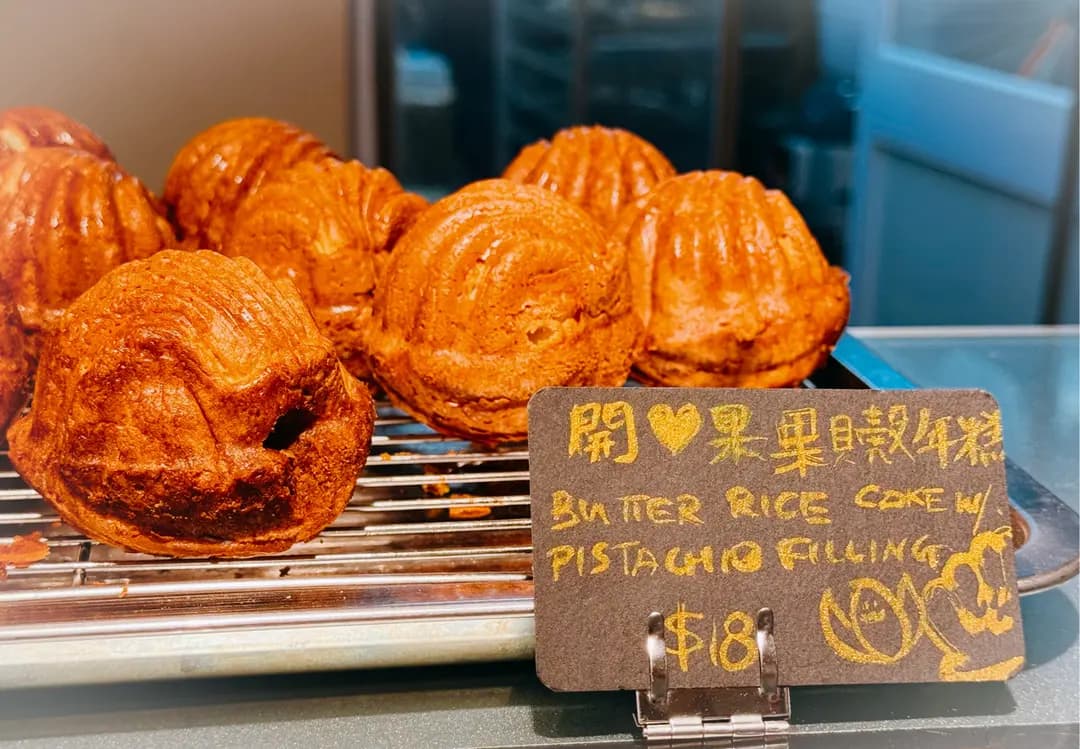 開♥果果貝殼年糕
BUTTER RICE CAKE W/
PISTACHIO FILLING
$18